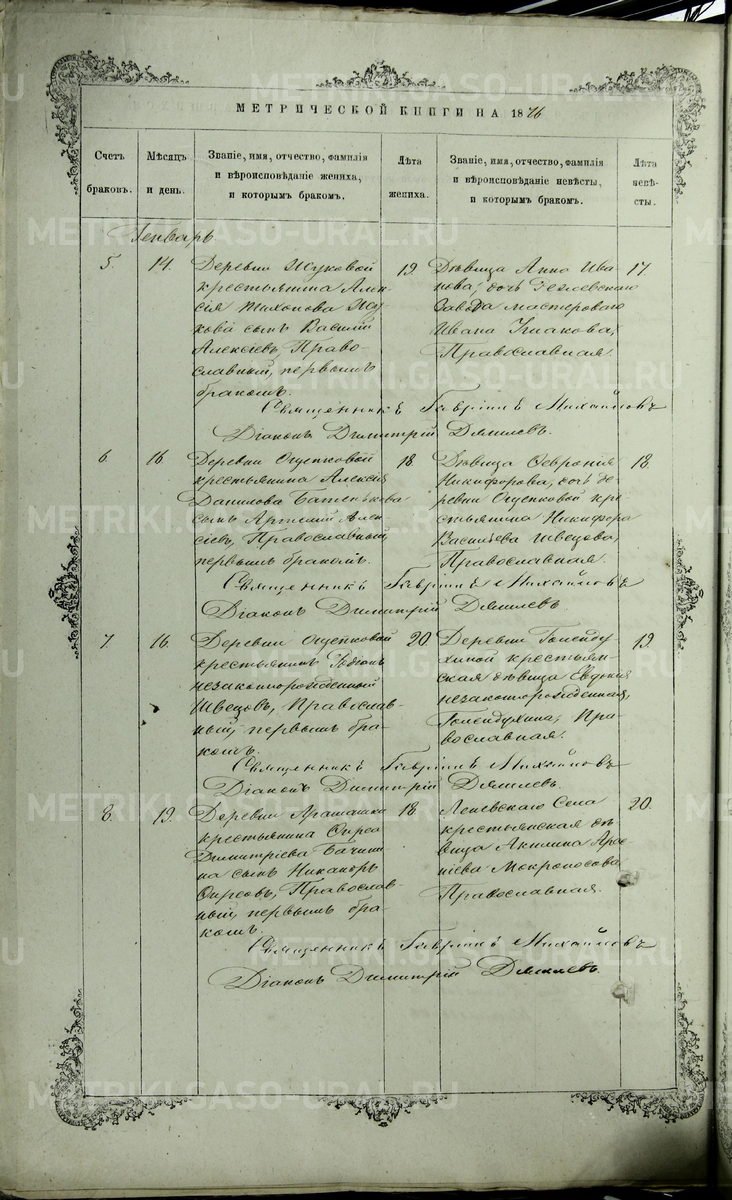 МЕТРИЧЕСКОЙ КНИГИ НА 1876
Счетъ браковъ.
Мѣсяцъ и день.
Званіе, имя, отчество, фамилія и вѣроисповѣданіе жениха, и которымъ бракомъ.
Лѣта жениха.
Званіе, имя, отчество, фамилія и вѣроисповѣданіе невѣсты, и которымъ бракомъ.
Лѣта невѣсты.
Генварь
5. 14. 19. 17.
Деревни Жуковой
крестьянина Алек-
сія Тихонова Жу-
кова сынъ Василій
Алексіевъ, Право-
славный, первымъ
бракомъ.
Дѣвица Анна Ива-
нова, дочь
Завода мастероваго
Ивана
Православная.
Священникъ Гавріилъ Михайловъ
Діаконъ Димитрій
6. 16. 18. 18.
Деревни Ощепковой
крестьянина Алексія
Данилова
сынъ Артемій Алек-
сіевъ, Православный,
первымъ бракомъ.
Дѣвица Февронія
Никифорова, дочь де-
ревни Ощепковой кре-
стьянина Никифора
Васильева Швецова,
Православная.
Священникъ Гавріилъ Михайловъ
Діаконъ Димитрій
7. 16. 20. 19.
Деревни Ощепковой
крестьянинъ Родіонъ
незаконнорожденный
Швецовъ, Православ-
ный, первымъ бра-
комъ.
Деревни Голенду-
хиной крестьян-
ская дѣвица Евдокія
незаконнорожденная,
Голендухина, Пра-
вославная.
Священникъ Гавріилъ Михайловъ
Діаконъ Димитрій
8. 19. 18. 20.
Деревни Арамашка
крестьянина Фирса
Димитріева Бачини-
на сынъ Никаноръ
Фирсовъ, Православ-
ный, первымъ бра-
комъ.
Леневскаго Села
крестьянская дѣ-
вица Акилина
Мокроносова,
Православная.
Священникъ Гавріилъ Михайловъ
Діаконъ Димитрій
METRIKI.GASO-URAL.RU